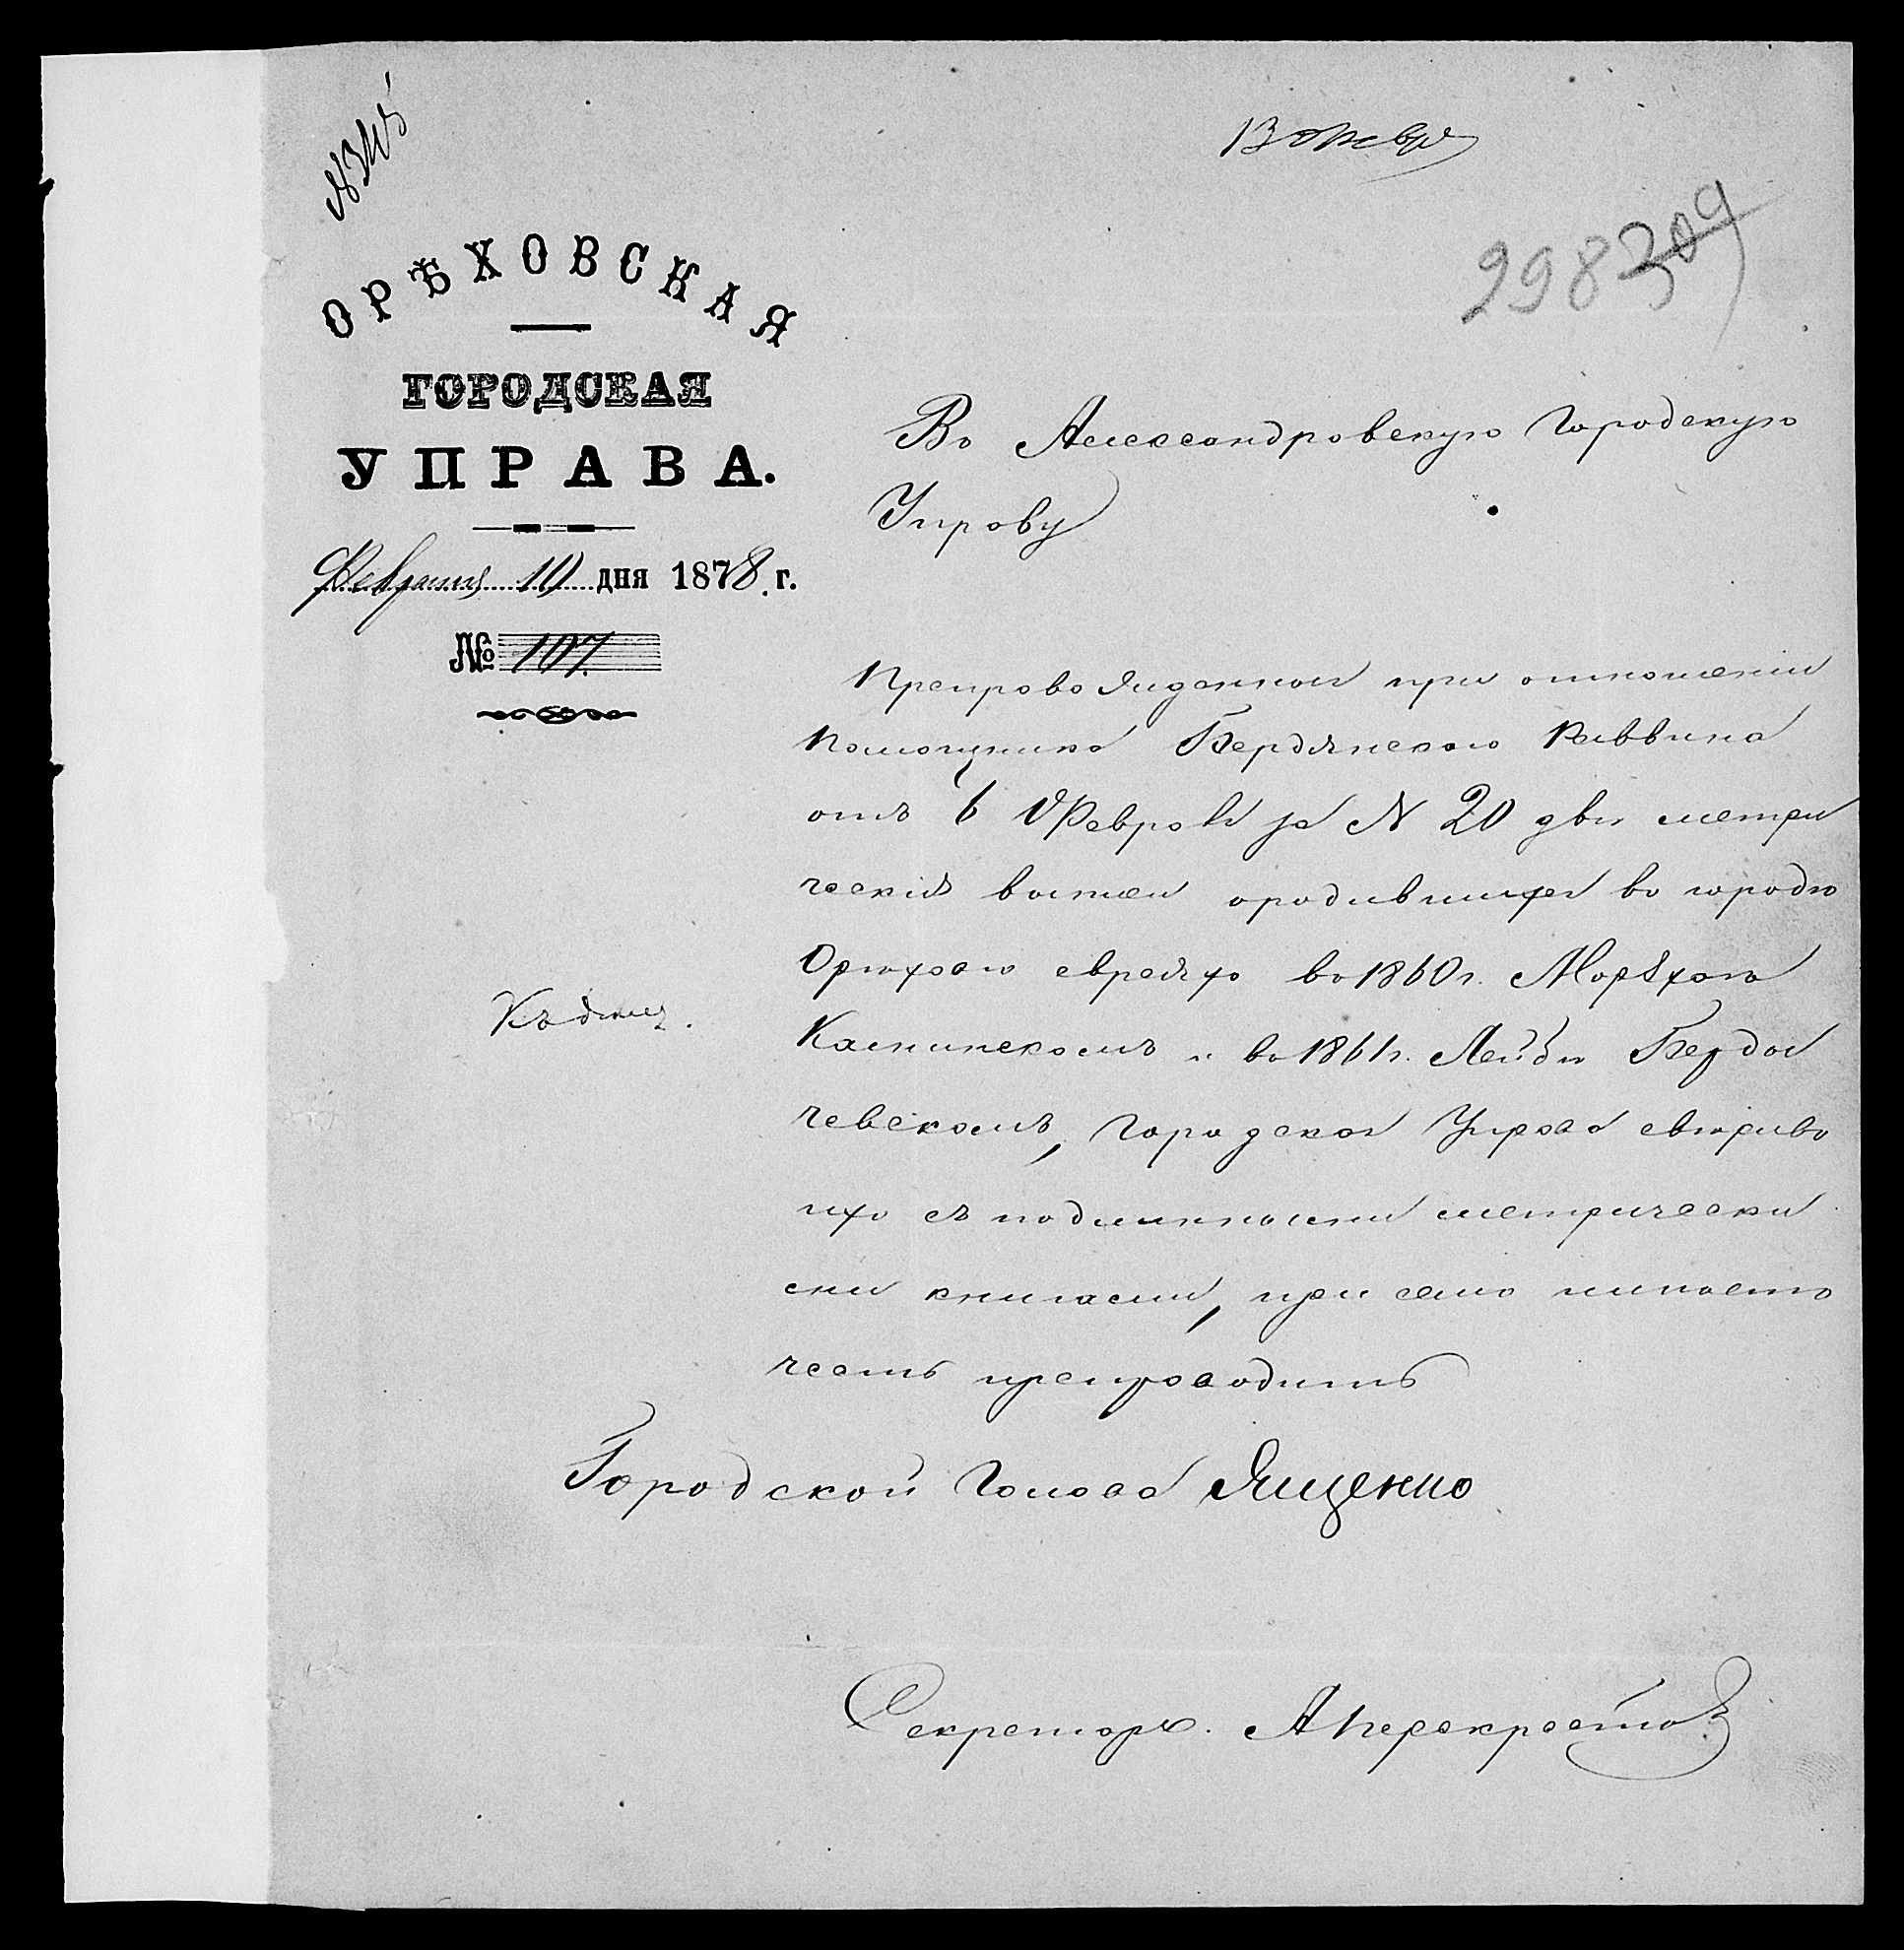 №345
13 Февр
298 309
ОРѢХОВСКАЯ
ГОРОДСКАЯ
УПРАВА.
Февраля 10 дня 1878 г.
№ 107.
Въ Александровскую Городскую
Управу
Препровожденные при отношеніи
Помощника Бердянскаго Раввина
отъ 6 Февраля за N 20 двѣ метри
ческія выписи о родившихся въ городѣ
Орѣховѣ евреяхъ въ 1860 г.
и въ 1861 г. Лейбѣ Берды
чевскомъ, Городская Управа свѣривъ
ихъ съ подлинными метрически
ми книгами, при семъ имѣетъ
честь препроводить
Къ дѣлу.
Городской Голова Ященко
Секретарь. А Перекрестов